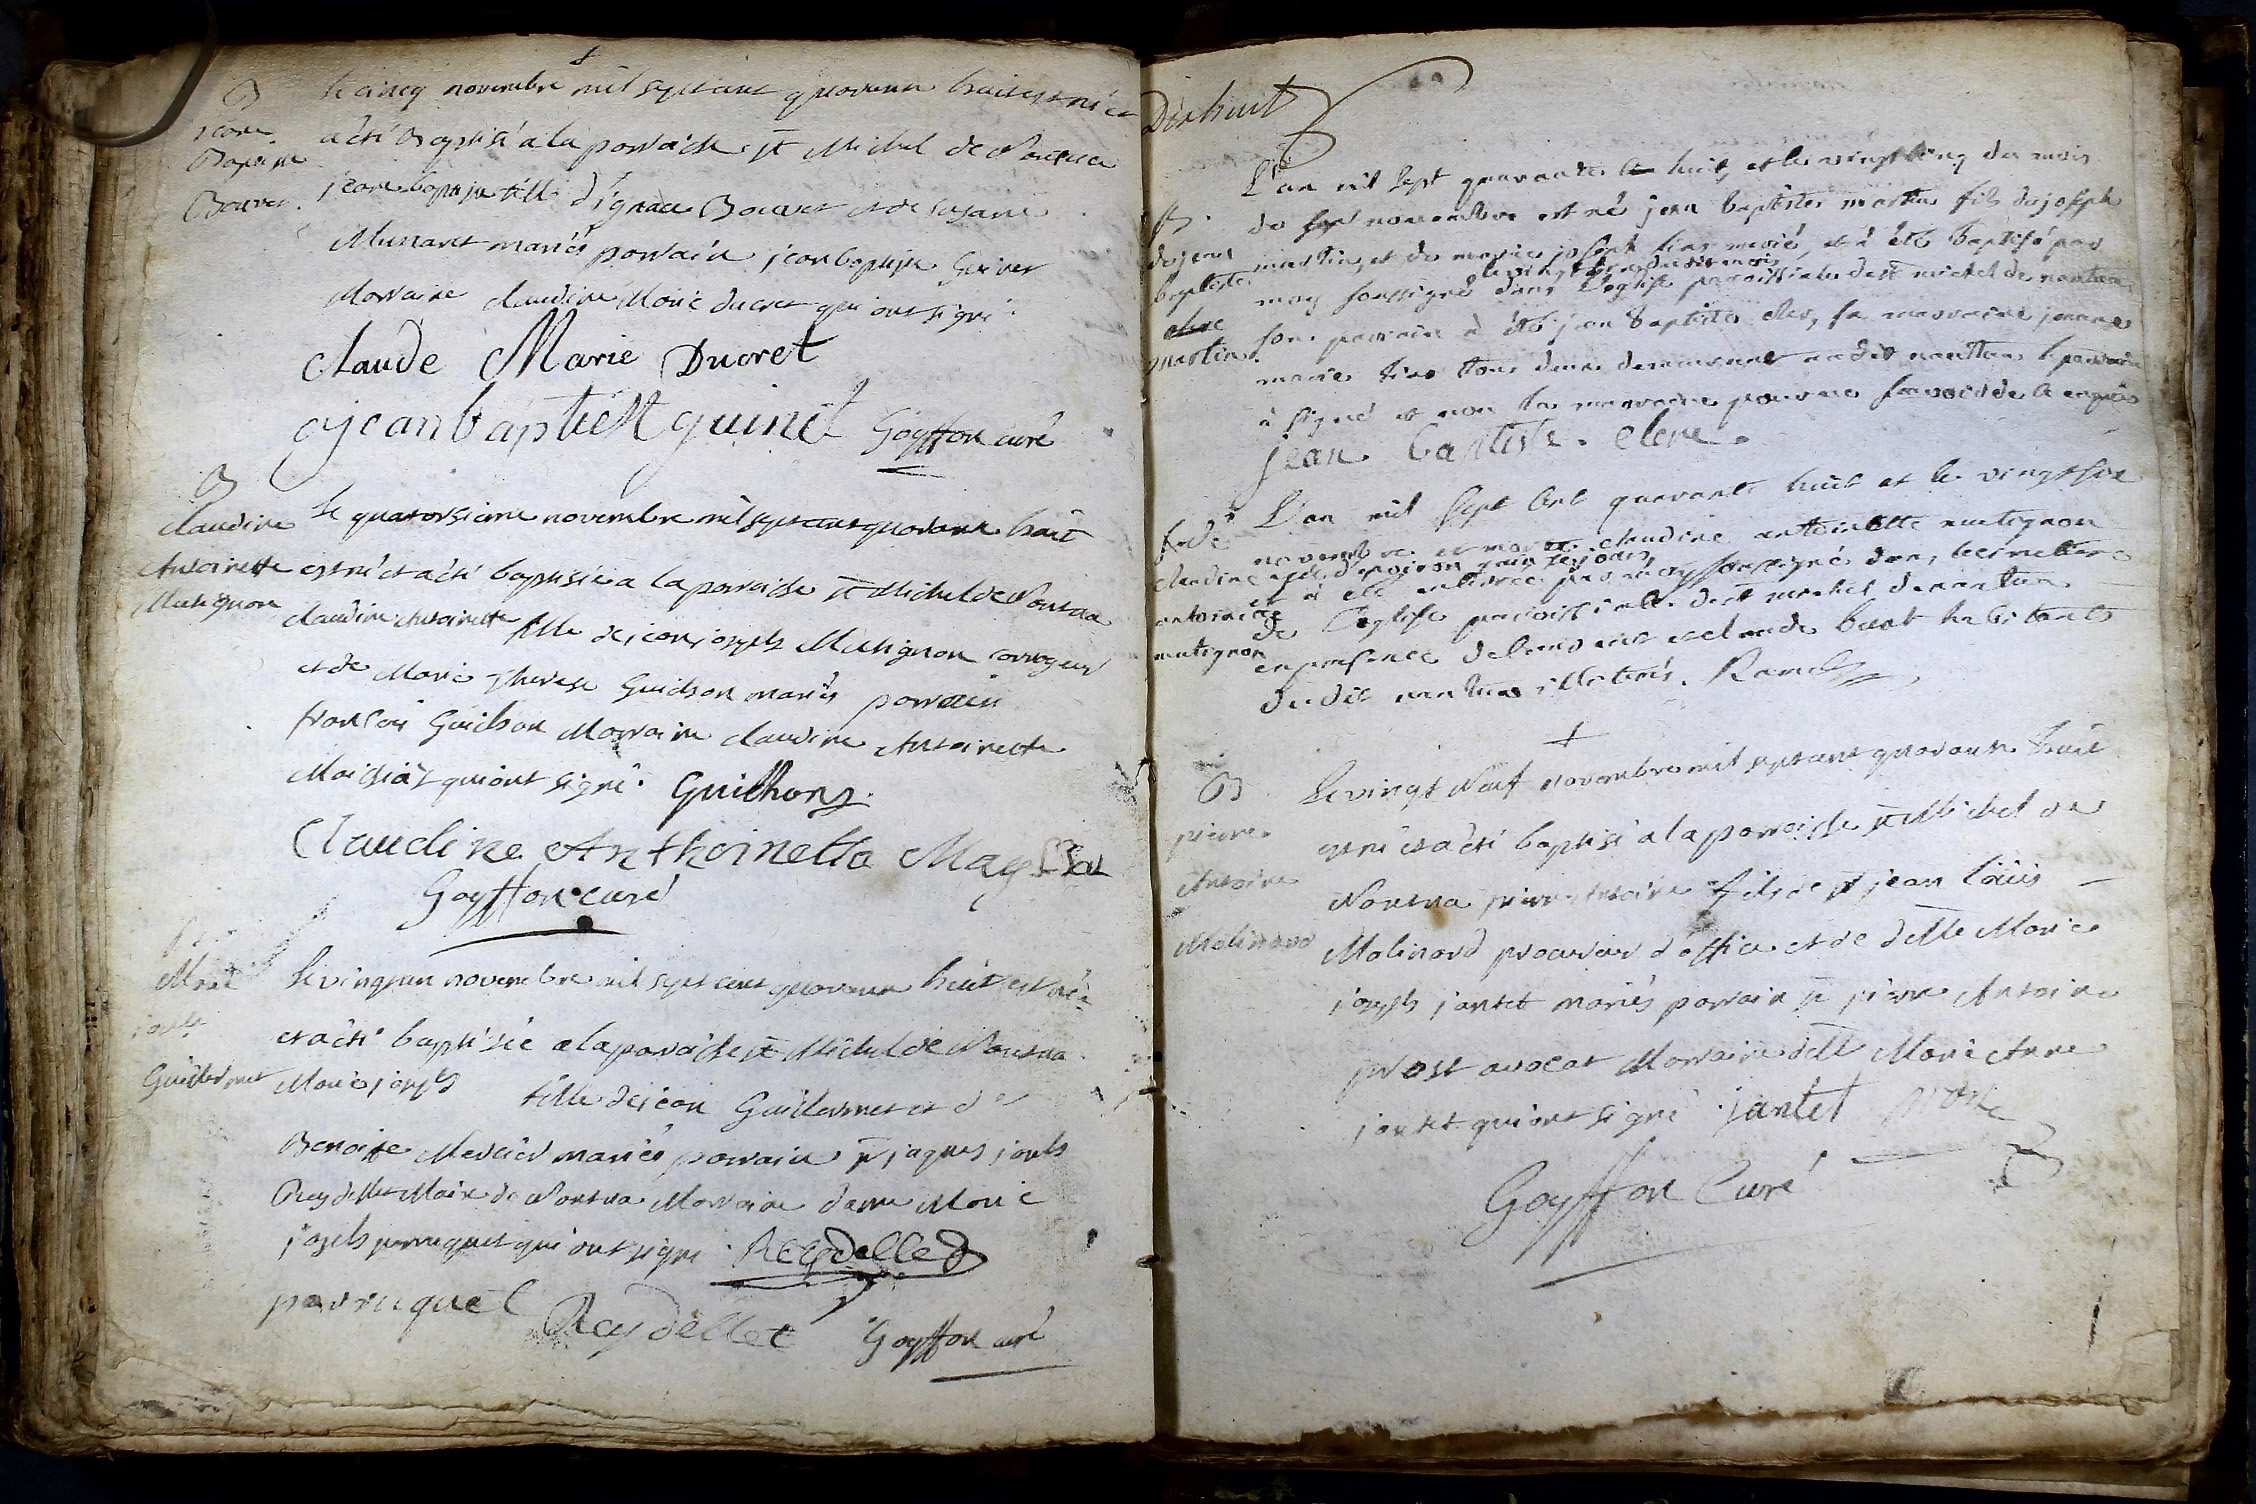 B
jean
Baptiste
Bouvet
le cinq novembre mil sept cent quarante huit est né et
a été Baptisé a la parroisse st Michel de Nantua
jean baptiste fils d'ignace Bouvet et de susane
Musnaret mariés parrain jean baptiste Guinet
Marraine claudine Marie ducret qui ont signé
claude Marie Ducret
jean baptiest guinet Goyffon curé
B
claudine
Antoinette
Mutignon
le quatorsieme novembre mil sept cent quarante huit
est née et a été baptisée a la parroisse st Michel de Nantua
claudine Antoinette fille de jean joseph Mutignon
et de Marie therese Guilhon mariés parrain
françois Guilhon Marraine claudine Antoinette
qui ont signé. Guilhon
Claudine Anthoinette
Goyffon curé
Marie
joseph
Guillermet
le vingt un novembre mil sept cent quarante huit est née
et a été baptisée a la parroisse st Michel de Nantua
Marie joseph fille de jean Guillermet et de
Benoite Mercier mariés parrain sr jaques joseph
Reydellet Maire de Nantua Marraine dame Marie
joseph perruquet qui ont signé. Reydellet
perruquet Reydellet Goyffon curé
Dixhuit
B.
de jean
baptiste
clerc
martin
L'an mil sept quarante huit, et le vingt cinq du mois
de novembre est né jean baptiste martin fils de joseph
martin, et de marie joseph mariés, et a été baptisé par
le vingt du dit mois
moy soussigné dans l'eglise paroissiale de st michel de nantua,
son parrain a été jean baptiste clerc, sa marraine jeanne
marie tous deux demeurant au dit nantua le parrain
a signé et non la marraine pour ne savoir de ce enquis
jean baptiste clerc.
claudine
antoinette
mutignon
L'an mil sept cent quarante huit et le vingt six
novembre est morte claudine antoinette mutignon
agée d'environ quinze jours,
et a été enterrée par moy soussigné dans le cimetiere
de l'eglise paroissiale de st michel de nantua
en presence de et claude habitants
du dit nantua illiterés. Ramel
B
pierre
Antoine
Molinard
le vingt Neuf novembre mil sept cent quarante huit
est né et a été baptisé a la parroisse st Michel de
Nantua pierre Antoine fils de sr jean Loüis
Molinard procureur d'office et de delle Marie
joseph jantet mariés parrain sr pierre Antoine
prost avocat Marraine delle Marie Anne
jantet qui ont signé jantet prost
Goyffon Curé